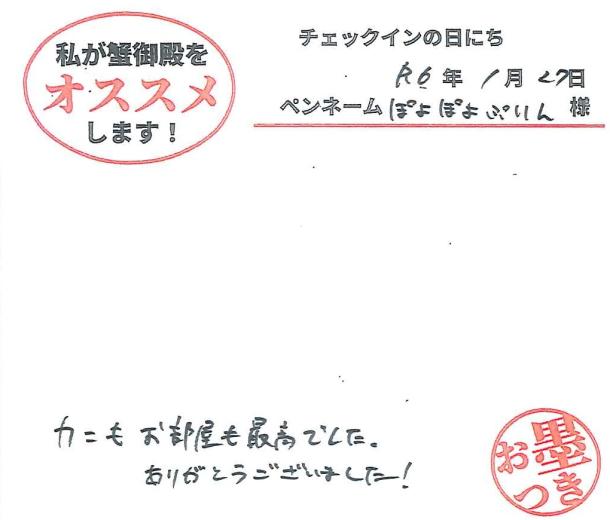 私が蟹御殿を
オススメ
します！
チェックインの日にち
R6年1月27日
ペンネーム ぽよぽよぷりん 様
カニもお部屋も最高でした。
ありがとうございました！
お墨つき